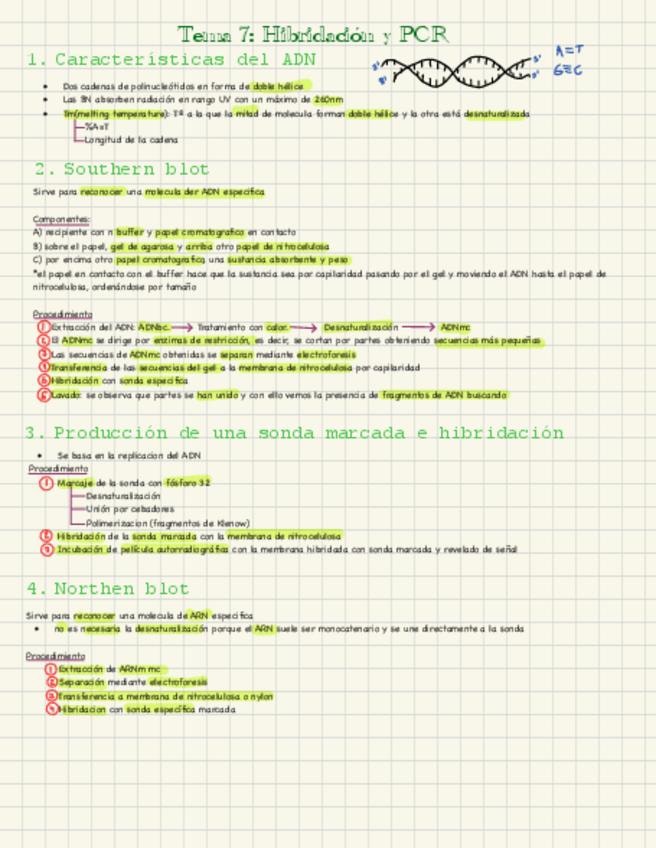 Tema 7: Hibridación y PCR
1. Características del ADN
3' 5'
5' 3'
A=T
G≡C
• Dos cadenas de polinucleótidos en forma de doble hélice
• Las BN absorben radiación en rango UV con un máximo de 260nm
• Tm(melting temperature): Tª a la que la mitad de molecula forman doble hélice y la otra está desnaturalizada
%A=T
Longitud de la cadena
2. Southern blot
Sirve para reconocer una molecula der ADN especifica
Componentes:
A) recipiente con n buffer y papel cromatografico en contacto
B) sobre el papel, gel de agarosa y arriba otro papel de nitrocelulosa
C) por encima otro papel cromatografico una sustancia absorbente y peso
*el papel en contacto con el buffer hace que la sustancia sea por capilaridad pasando por el gel y moviendo el ADN hasta el papel de
nitrocelulosa, ordenándose por tamaño
Procedimiento
1 Extracción del ADN: ADNbc → Tratamiento con calor → Desnaturalización → ADNmc
2 El ADNmc se dirige por enzimas de restricción, es decir, se cortan por partes obteniendo secuencias más pequeñas
3 Las secuencias de ADNmc obtenidas se separan mediante electroforesis
4 Transferencia de las secuencias del gel a la membrana de nitrocelulosa por capilaridad
5 Hibridación con sonda especifica
6 Lavado: se observa que partes se han unido y con ello vemos la presencia de fragmentos de ADN buscando
3. Producción de una sonda marcada e hibridación
• Se basa en la replicacion del ADN
Procedimiento
1 Marcaje de la sonda con fósforo 32
Desnaturalización
Unión por cebadores
Polimerizacion (fragmentos de Klenow)
2 Hibridación de la sonda marcada con la membrana de nitrocelulosa
3 Incubación de película autorradiográfica con la membrana hibridada con sonda marcada y revelado de señal
4. Northen blot
Sirve para reconocer una molécula de ARN especifica
• no es necesaria la desnaturalización porque el ARN suele ser monocatenario y se une directamente a la sonda
Procedimiento
1 Extracción de ARNm mc
2 Separación mediante electroforesis
3 Transferencia a membrana de nitrocelulosa o nylon
4 Hibridacion con sonda específica marcada